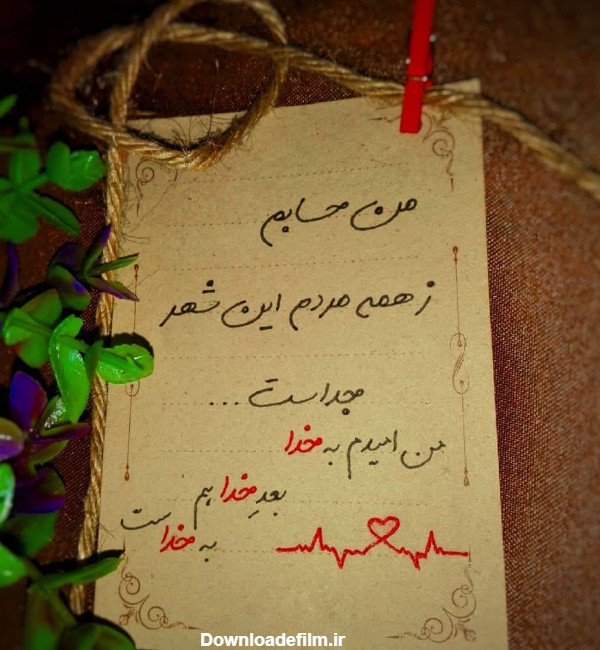 من حسابم
ز همه مردم این شهر
جداست ...
من امیدم به خدا
بعدِ خدا هم
به خداست
Downloadefilm.ir